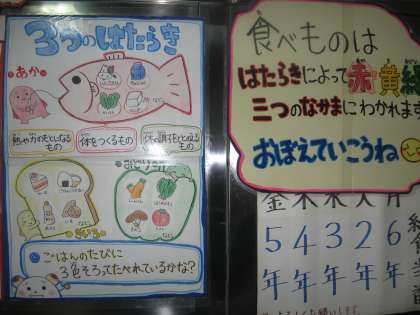 3つのはたらき
あか
熱や力のもとになるもの
体をつくるもの
体の調子をととのえるもの
きいろ
みどり
ごはんのたびに
3色そろってたべれているかな?
食べものは
はたらきによって赤黄緑
三つのなかまにわかれます
おぼえていこうね
金木水火月
5 4 3 2 6
年年年年年